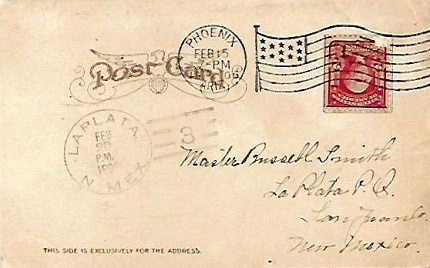 PHOENIX
FEB 15
7-PM
ARIZ.
Post Card
LAPLATA
FEB
20
P.M.
N. MEX.
3
Master Russell Smith
La Plata P.O.
San Juan Co.
New Mexico.
THIS SIDE IS EXCLUSIVELY FOR THE ADDRESS.